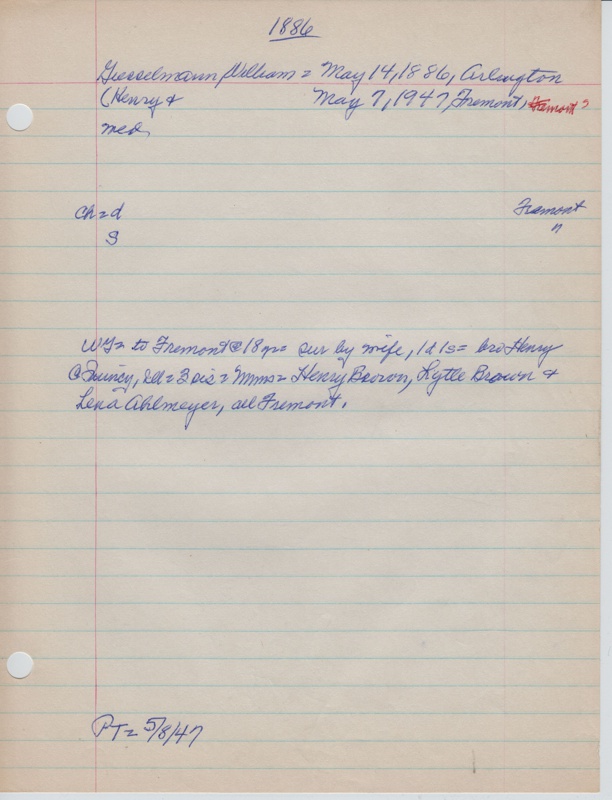 1886
Giesselmann, William = May 14, 1886, Arlington
(Henry & May 7, 1947, Fremont, Fremont
med,
ch = d Fremont
S "
WG = to Fremont @ 18 = sur by wife, 1d 1s = bro Henry
@ Quincy, Ill = 3 sis = Mmes = Henry Brown, Lytle Brown &
Lena Ahlmeyer, all Fremont.
PT = 5/8/47